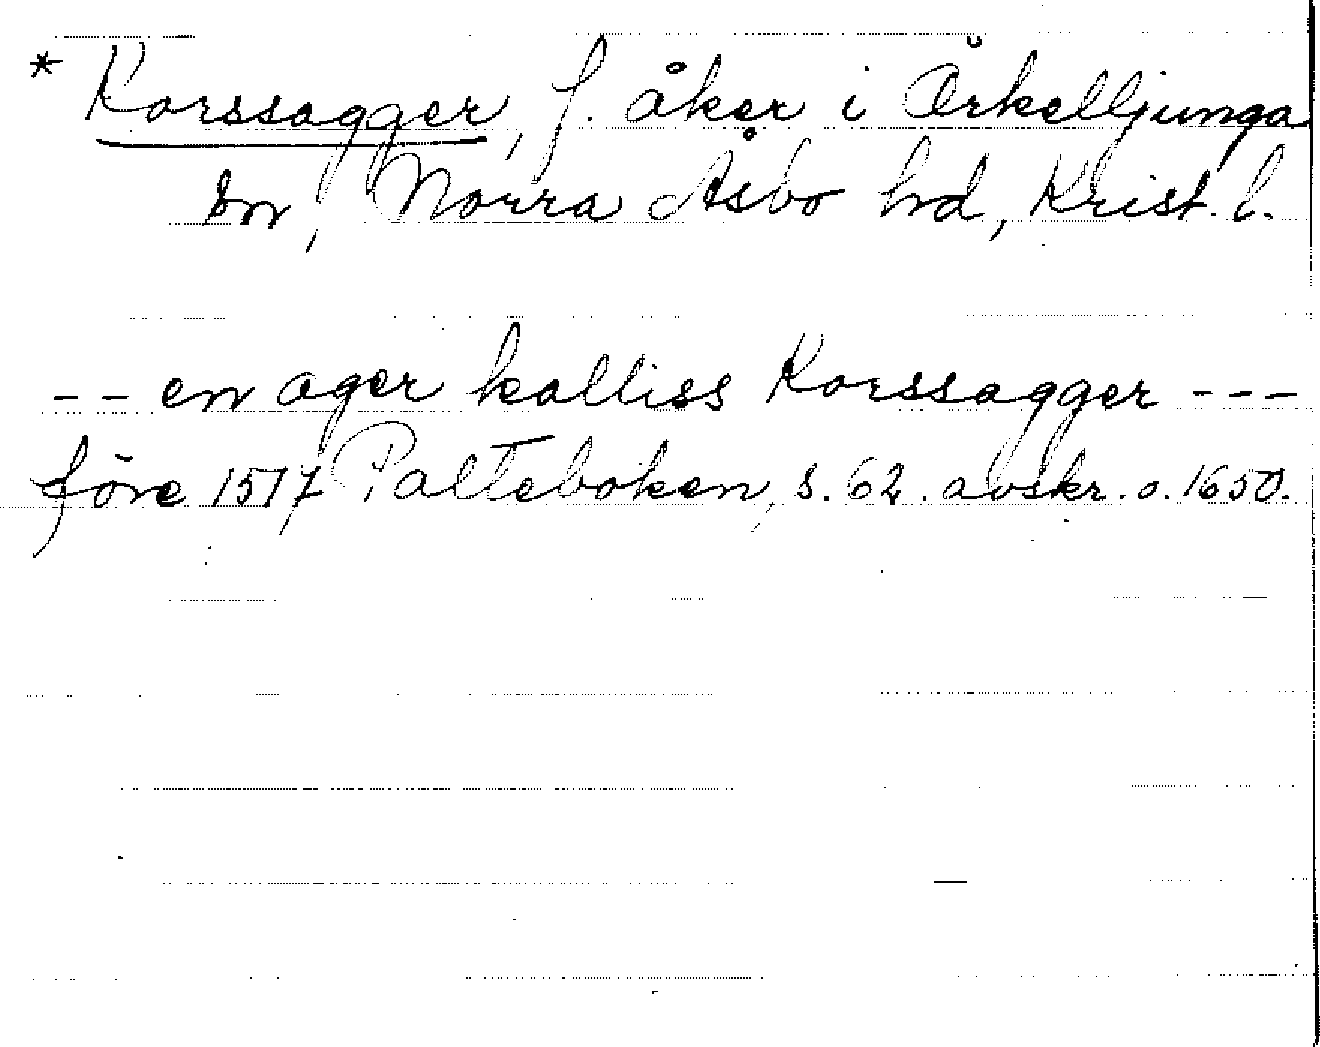 * Korssagger, f. åker i Örkelljunga
sn, Norra Åsbo hd, Krist. l.
-- en ager kalliss Korssagger ---
före 1517 Palteboken, s. 62. avskr. o. 1650.